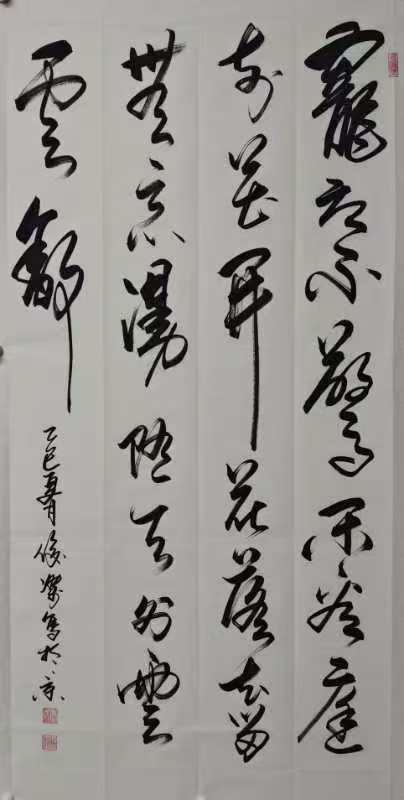 寵辱不驚閑看庭
前花開花落去留
無意漫隨天外雲
雲舒
乙巳夏月俊寫於京